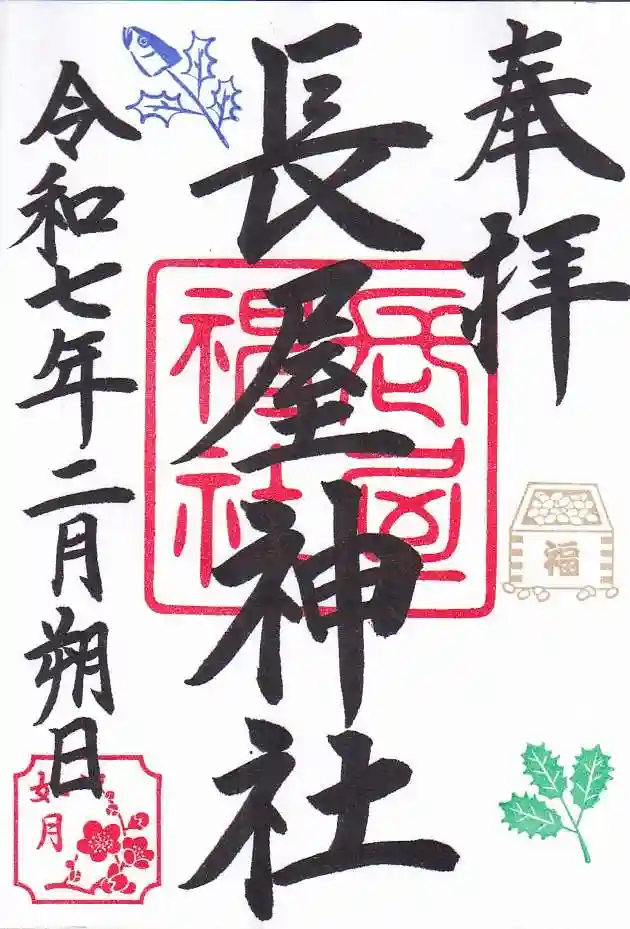 奉拝
長屋神社
長屋神社
令和七年二月朔日
福
如月